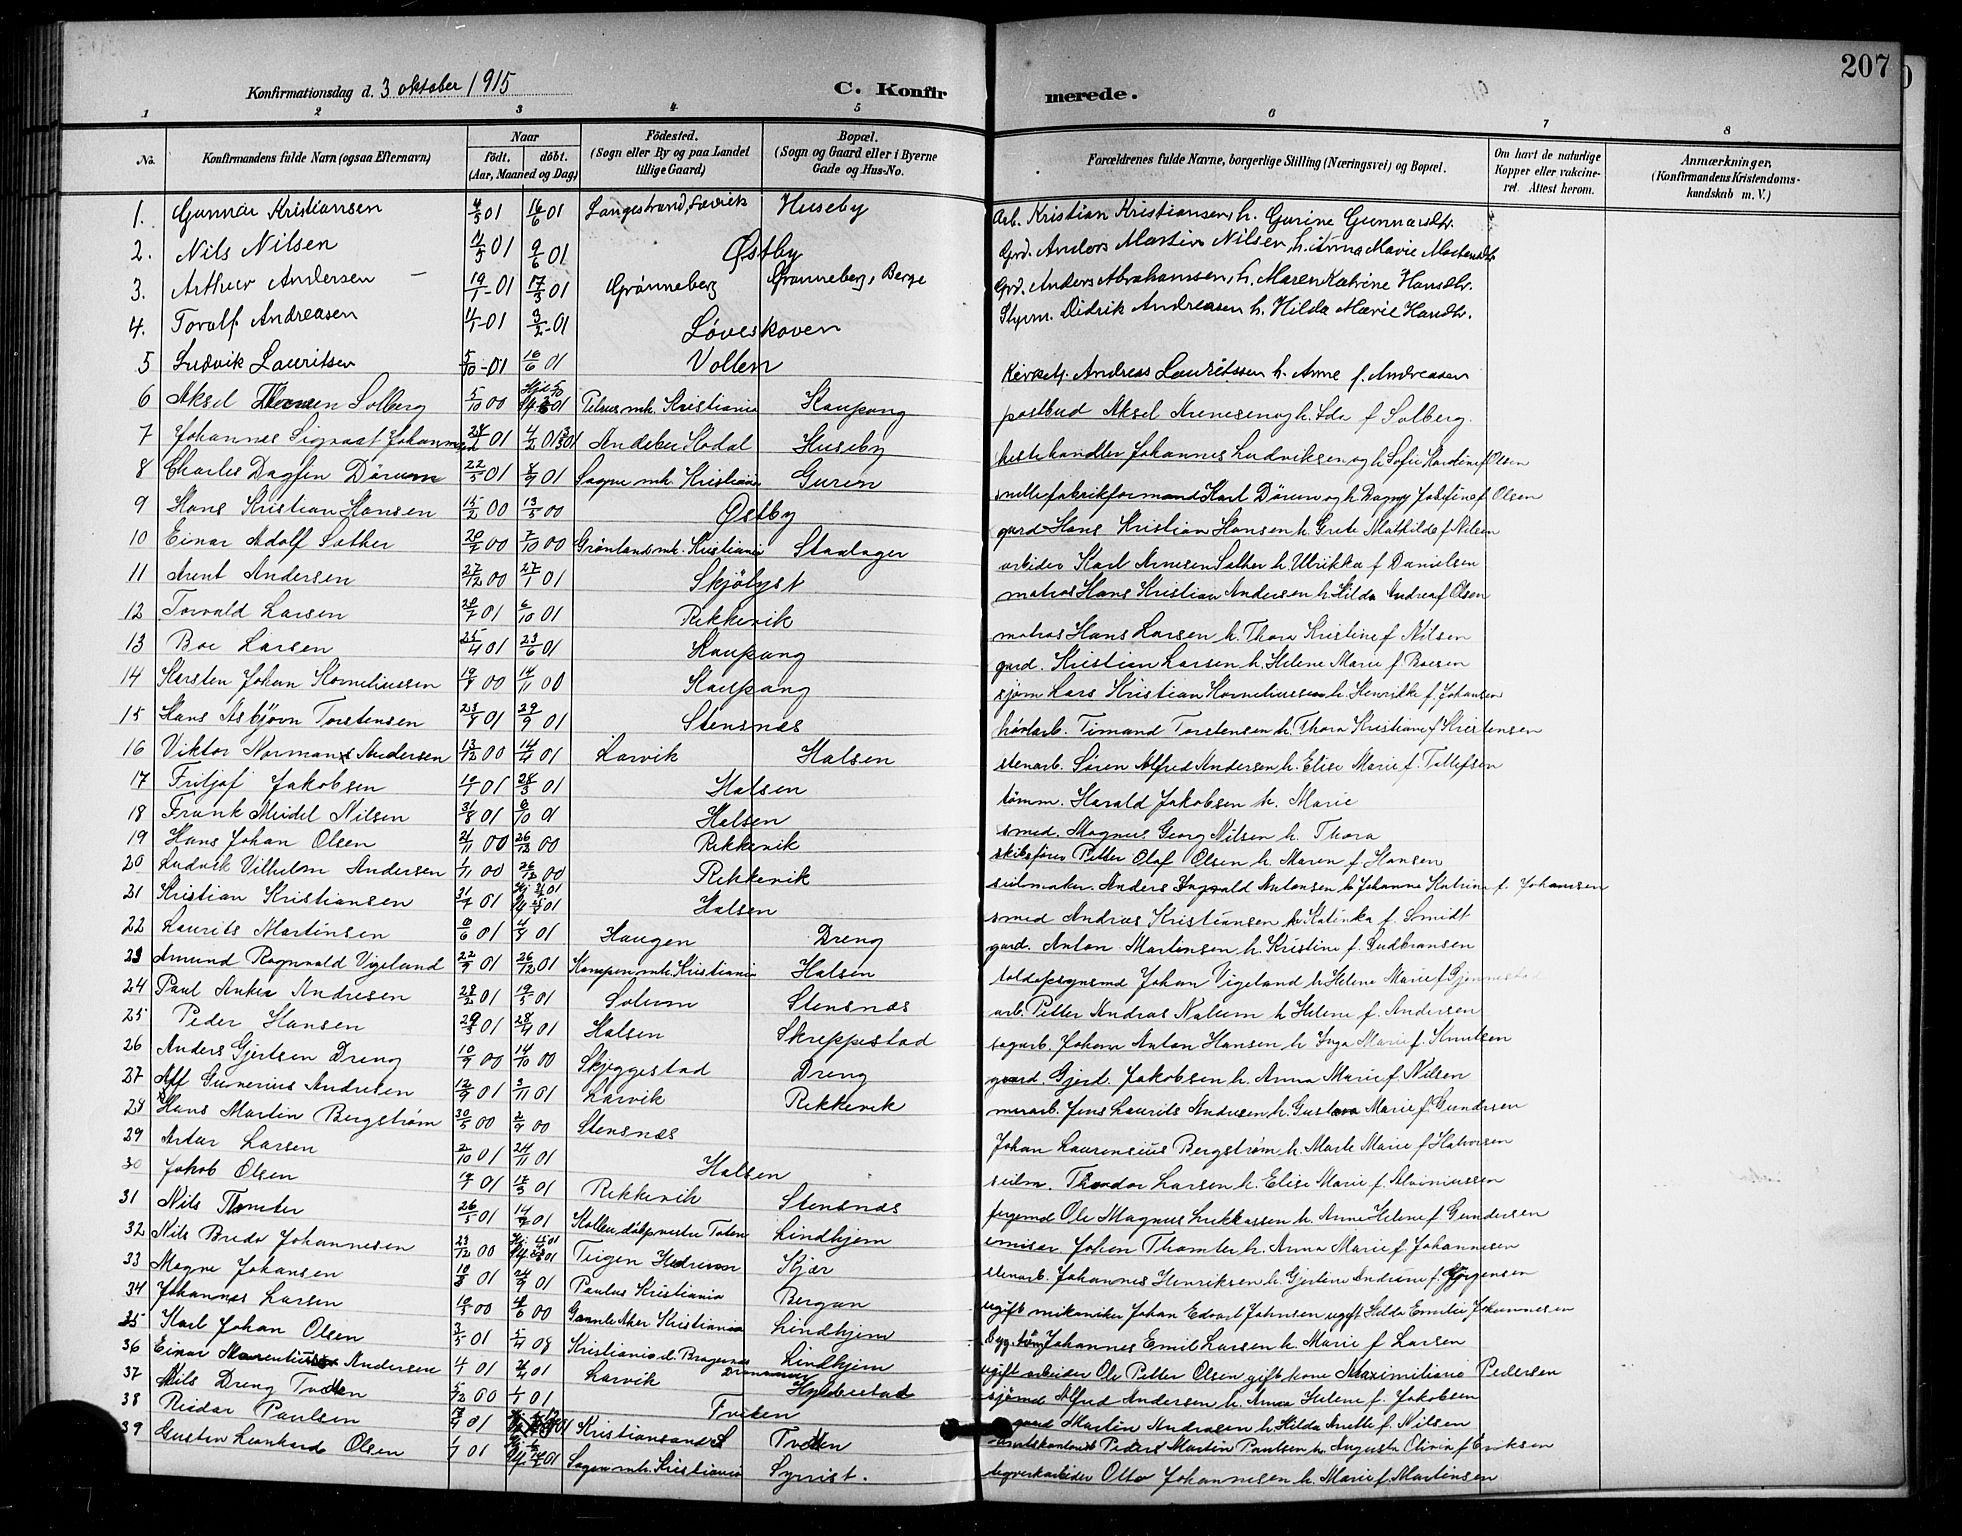 207
Konfirmationsdag d. 3 oktober 1915
C. Konfirmerede.
1 2 3 4 5 6 7 8
No.
Konfirmandens fulde Navn (ogsaa Efternavn)
Naar
født, døbt.
(Aar, Maaned og Dag)
Fødested.
(Sogn eller By og paa Landet
tillige Gaard)
Bopæl.
(Sogn og Gaard eller i Byerne
Gade og Hus-No.
Forældrenes fulde Navne, borgerlige Stilling (Næringsvei) og Bopæl.
Om havt de naturlige
Kopper eller vakcine-
ret. Attest herom.
Anmærkninger,
(Konfirmandens Kristendoms-
kundskab m. V.)
1. Gunnar Kristiansen 4/5 01 16/6 01 Langestrand, Larvik Huseby Arb. Kristian Kristiansen, h. Gurine Gunnarsdtr.
2. Nils Nilsen 11/5 01 9/6 01 Østby Grd. Anders Martin Nilsen, h. Anna Marie Mortensdtr
3. Arthur Andersen 19/1 - 01 17/3 01 Grønneberg Grønneberg, Berge Grd. Anders Abrahamsen, h. Maren Katrine Hansdtr.
4. Toralf Andreasen 4/1 - 01 3/2 - 01 Løveskoven Styrm. Didrik Andreasen h. Hilda Marie Hansdtr.
5 Ludvik Lauritsen 5/10 - 01 16/6 01 Vollen Andreas Lauritssen h. Anne f. Andreasen
6 Aksel Solberg 5/10 00 Petrus mh. Kristiania Kaupang postbud Aksel Arnesen og h. Ida f Solberg.
7 Johannes Sigvart Johannesen 24/1 01 4/2 01 Andebu Hodal Huseby hestehandler Johannes Ludviksen og h. Sofie Karoline f Olsen
8 Charles Dagfin Dørum 22/5 01 4/9 01 Sagene mh. Kristiania Guren Karl Dørum og h. Dagny Josefine f. Olsen
9 Hans Kristian Hansen 15/2 00 13/5 00 Østby gard Hans Kristian Hansen h. Grete Mathilde f Nilsen
10 Einar Adolf Sather 20/7 00 7/10 00 Grønlands mh. Kristiania Stavlager arbider Karl Arnesen Sather h. Ulrikka f Danielsen
11 Arent Andersen 27/12 00 27/1 01 Skjølyst matros Hans Kristian Andersen h. Hilda Andrea f Olsen
12 Torvald Larsen 20/7 01 6/10 01 Rekkevik matros Hans Larsen h. Thora Kristine f Nilsen
13 Boe Larsen 25/4 01 23/6 01 Kaupang gard. Kristian Larsen h. Helene Marie f. Boesen
14 Karsten Johan Korneliussen 19/9 00 14/11 00 Kaupang sjøm Lars Kristian Korneliussen h. Henrikke f. Johansen
15 Hans Asbjørn Torstensen 23/8 01 29/9 01 Stensnæs Timand Torstensen h. Thora Kristiane f Kristensen
16 Viktor Norman Andersen 13/12 00 14/4 01 Larvik Halsen stenarb. Søren Alfred Andersen h. Elise Marie f. Tollefsen
17 Fritjof Jakobsen 19/1 01 24/3 01 Halsen tømm. Harald Jakobsen h. Marie
18 Frank Meidel Nilsen 31/8 01 6/10 01 Halsen smed. Magnus Georg Nilsen h. Thora
19 Hans Johan Olsen 21/11 00 26/12 00 Rekkevik skibsfører Petter Olaf Olsen h. Maren f. Hansen
20 Ludvik Vilhelm Andersen 1/11 00 26/12 00 Rekkevik seilmaker. Anders Ingvald Antonsen h Johanne Katrine f. Johannsen
21 Kristian Kristiansen 21/7 01 Halsen smed Andreas Kristiansen h. Katinka f. Smidt
22 Laurits Martinsen 6/6 01 4/8 01 Haugen Dreng gard. Anton Martinsen h. Kristine f. Gudbransen
23 Amund Ragnvald Vigeland 22/9 01 26/12 01 Kampen mh. Kristiania Halsen Johan Vigeland h Helene Marie f Gjennestad
24 Paul Anker Andresen 28/2 01 19/5 01 Solum Stensnæs arb. Petter Andras Nalum h Helene f. Andersen
25 Peder Hansen 29/3 01 28/4 01 Halsen Skreppestad sagarb. Johan Anton Hansen h Inga Marie f. Knutsen
26 Anders Gjertsen Dreng 10/9 00 14/10 00 Skjeggestad Dreng gaard. Gjerd. Jakobsen h. Anna Marie f. Nilsen
27 Alf Gunerius Andresen 12/9 01 3/11 01 Larvik Rekkevik murarb. Jens Laurits Andresen h. Gustava Marie f. Gundersen
28 Hans Martin Bergstrøm 30/5 00 2/9 00 Stensnæs Johan Laurensius Bergstrøm h. Marte Marie f Halvorsen
29 Artur Larsen 2/10 01 24/11 01 Halsen seilm. Theodor Larsen h. Elise Marie f. Alviniussen
30 Jakob Olsen 01 17/3 01 Rekkevik Stensnæs Ole Magnus Lukkassen h. Anne Helene f Gundersen
31 Nils Thomter 26/5 01 14/7 01 Kolbu døbt vestre Toten Lindhjem emisær Johan Thomter h. Anna Marie f. Johannesen
32 Nils Bredo Johannesen 23/12 00 Teigen Hedrum Kjær stenarb. Johannes Henriksen h. Gjertine Andrine f. Jørgensen
33 Magne Johansen 10/8 01 01 Paulus Kristiania Bergan ugift mikaniker Johan Edvart Johnsen ugift Hilda Emilie Johannesen
34 Johannes Larsen 10/3 00 4/6 00 Gamle Aker Kristiania Lindhjem Johannes Emil Larsen h. Marie f Larsen
35 Karl Johan Olsen 3/5 01 Kristiania d. Bragernes Drammen Lindhjem ugift arbeider Ole Petter Olsen gift kone Maximiliane Pedersen
36 Einar Andersen 4/1 01 01 Larvik Hybbestad sjømd Alfred Andersen h. Anna Helene f Jakobsen
37 Nils Dreng Tveten 5/12 00 1/1 01 Tveten gard Martin Andrasen h. Hilda Anette f. Nilsen
38 Reidar Paulsen 4 01 Kristiansand S Tveten Peder Martin Paulsen h. Augusta Olivia f Eriksen
39 Gusten Leonhard Olsen 1/7 01 Sagen mh. Kristiania Syrrist. teglverkarbeider Otto Johannesen h. Marie f. Martinsen